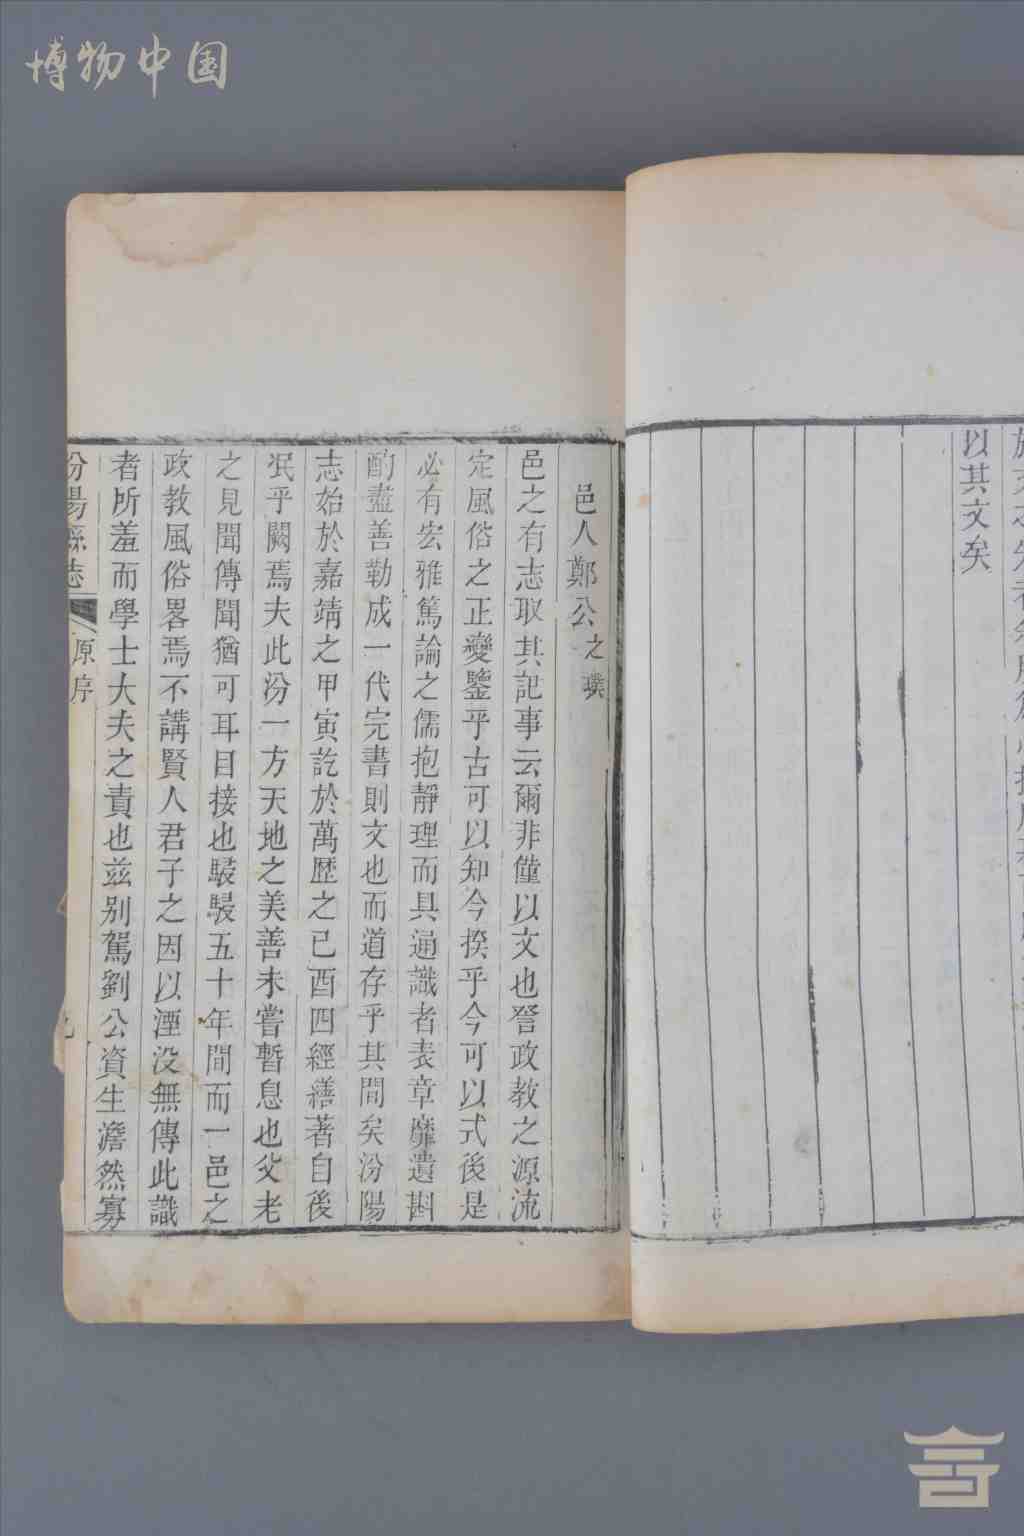 博物中国
以其文矣
邑人鄭公之璞
邑之有志取其記事云爾非僅以文也啓政教之源流
定風俗之正變鑒乎古可以知今揆乎今可以式後是
必有宏雅篤論之儒抱靜理而具通識者表章靡遺斟
酌盡善勒成一代完書則文也而道存乎其間矣汾陽
志始於嘉靖之甲寅訖於萬歷之已酉四經繕著自後
泯乎闕焉夫此汾一方天地之美善未嘗暫息也父老
之見聞傳聞猶可耳目接也駸駸五十年間而一邑之
政教風俗畧焉不講賢人君子之因以湮没無傳此識
者所羞而學士大夫之責也兹别駕劉公資生澹然寡
汾陽縣志
原序